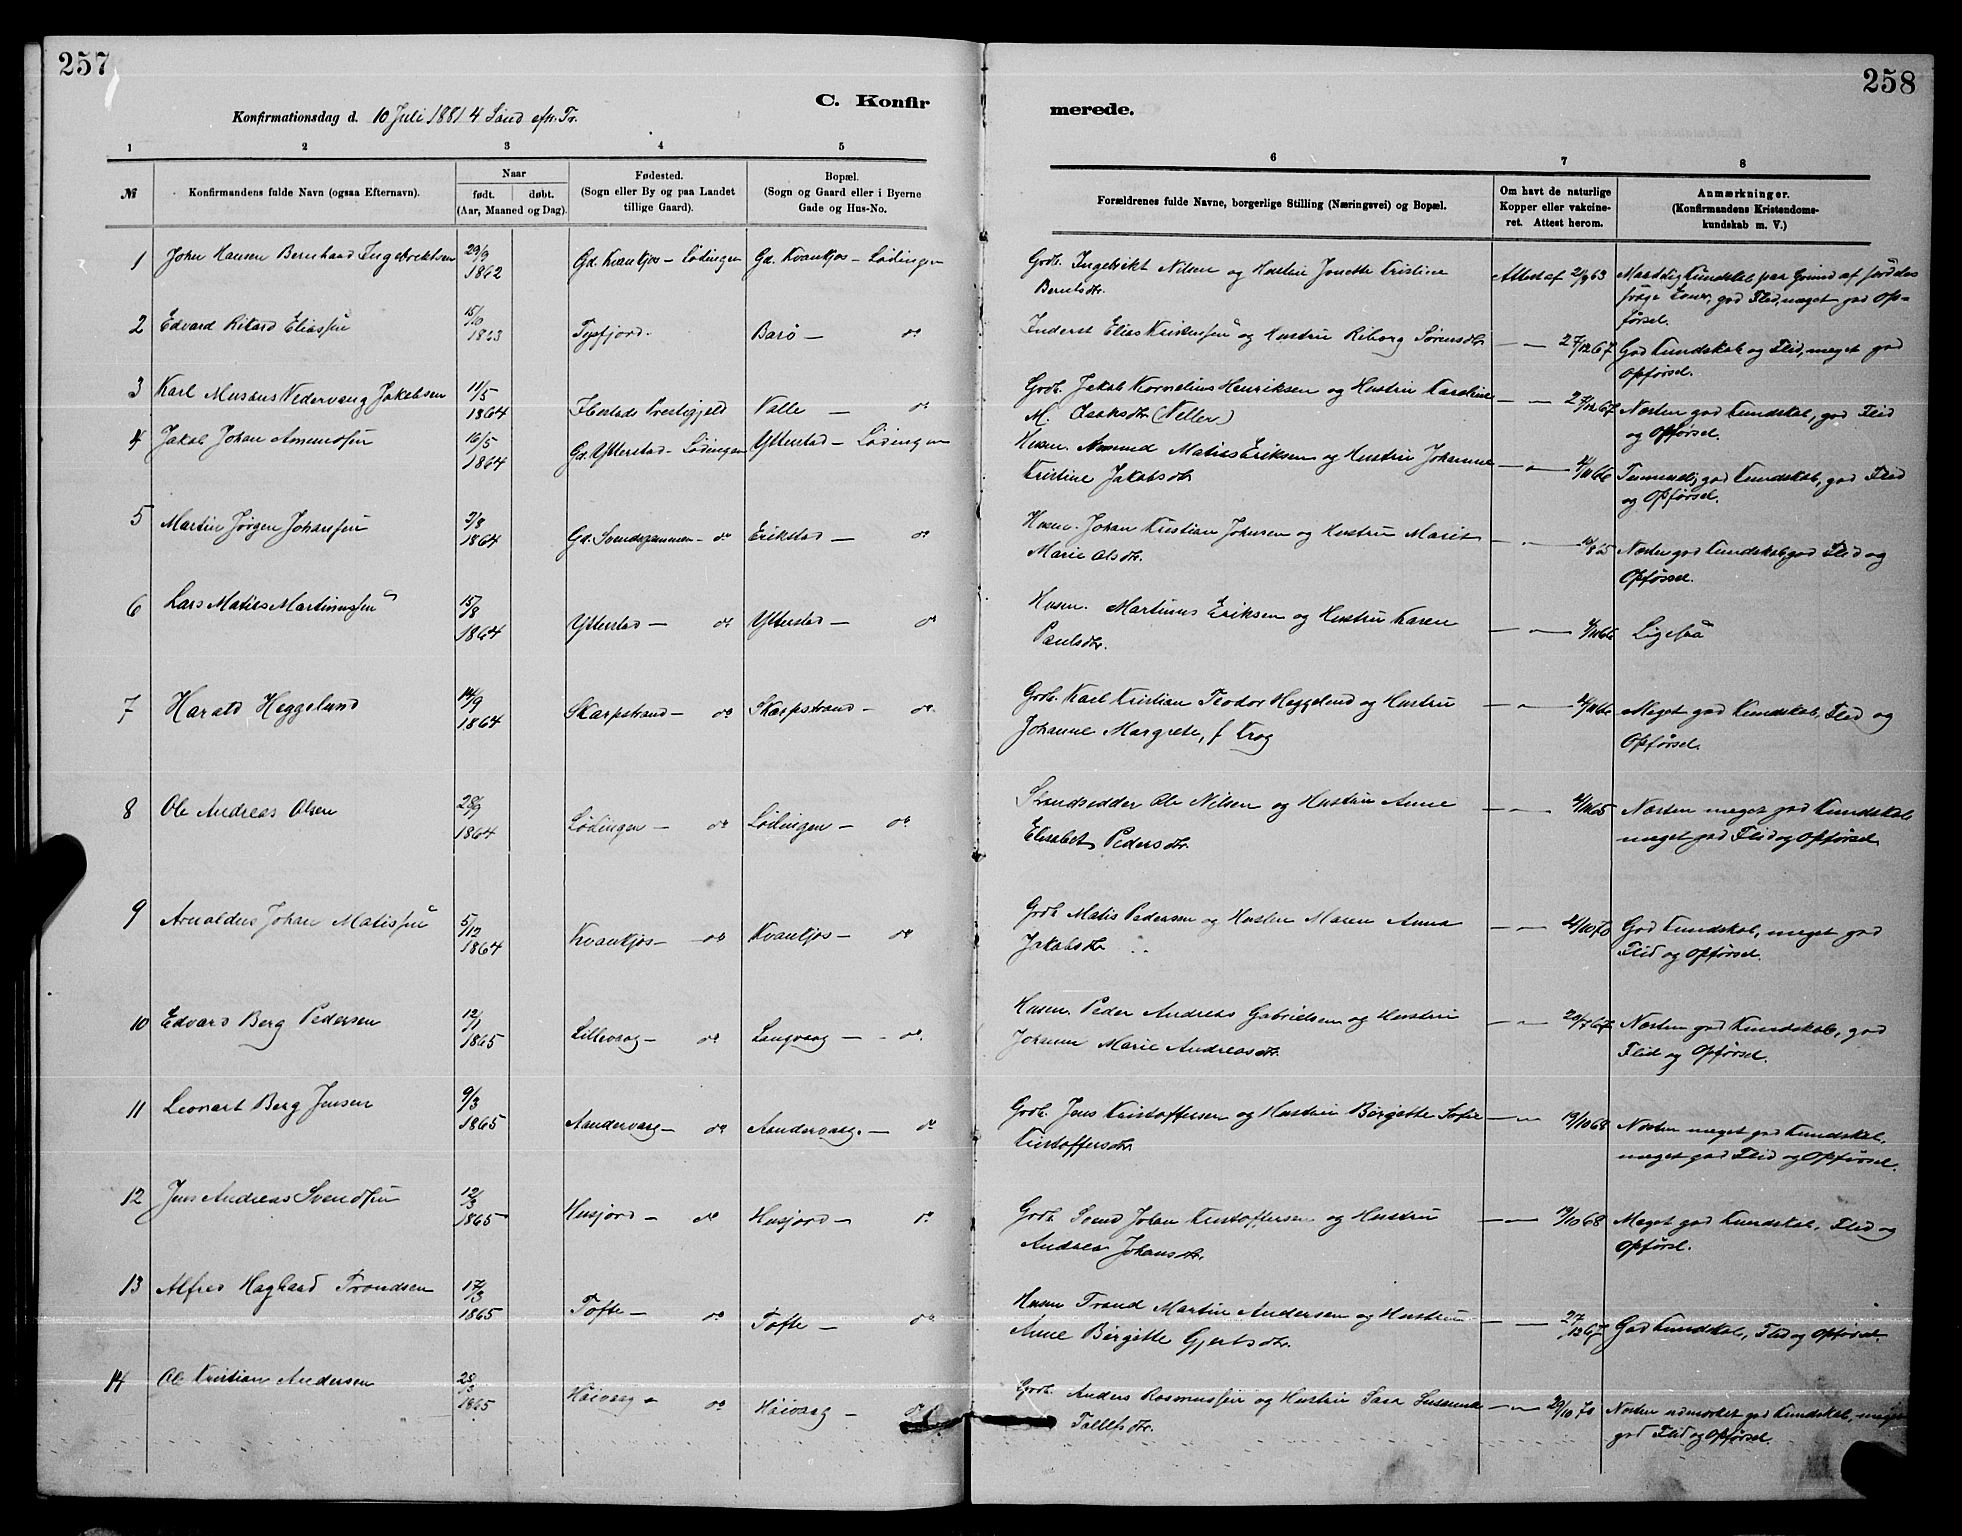 257
258
C. Konfir
merede.
Konfirmationsdag d. 10 Juli 1881 4 Sønd eft. Tr.
1 2 3 4 5
6 7 8
№ Konfirmandens fulde Navn (ogsaa Efternavn).
Naar
født. døbt.
(Aar, Maaned og Dag).
Fødested.
(Sogn eller By og paa Landet
tillige Gaard).
Bopæl.
(Sogn og Gaard eller i Byerne
Gade og Hus-No.
Forældrenes fulde Navne, borgerlige Stilling (Næringsvei) og Bopæl.
Om havt de naturlige
Kopper eller vakcine-
ret. Attest herom.
Anmærkninger.
(Konfirmandens Kristendoms-
kundskab m. V.)
1 John Hansen Bernhard Ingebriktsen 29/9 1862 Gd. Kvankjos - Lødingen Gd. Kvankjos - Lødingen
Grdb. Ingebrikt Nilsen og Hustru Jonette Kristine
Berntsdtr. Attest af 2/9 63 Maadelig Kundskab paa Grund af
god Flid, meget god Op-
førsel.
2 Edvard Rikard Eliassen 15/10 1863 Tysfjord. Barø - do
Inderst Elias Kristensen og Hustru Reborg Sørensdtr — 27/12 67 God Kundskab og Flid, meget god
Opførsel.
3 Karl Musæus Nedervang Jakobsen 11/5 1864 Ibestads Prestegjeld Valle - do
Grdb. Jakob Kornelius Henriksen og Hustru Karoline
M. Isaksdtr (Neller) — 27/12 67 Næsten god Kundskab, god Flid
og Opførsel.
4 Jakob Johan Amundsen 16/5 1864 Gd. Ytterstad - Lødingen Ytterstad - Lødingen
Husm. Amund Matias Eriksen og Hustru Johanne
Kristine Jakobsdtr — 4/11 66 Temmelig god Kundskab, god Flid
og Opførsel.
5 Martin Jørgen Johansen 3/8 1864 Gd. Svendsgammen - do Erikstad - do
Husm. Johan Kristian Johnsen og Hustru Marit
Marie Olsdtr. — Næsten god Kundskab god Flid og
Opførsel.
6 Lars Matias Martinussen 15/8 1864 Ytterstad - do Ytterstad - do
Husm. Martinus Eriksen og Hustru Karen
Paulsdtr. — 4/11 66 Ligesaa
7 Harald Heggelund 14/9 1864 Skarpstrand - do Skarpstrand - do
Grdb. Karl Kristian Teodor Heggelund og Hustru
Johanne Margrete, f Krog — 4/11 66 Meget god Kundskab, Flid og
Opførsel.
8 Ole Andreas Olsen 28/9 1864 Lødingen - do Lødingen - do
Strandsidder Ole Nilsen og Hustru Anne
Elisabet Pedersdtr. — 4/11 65 Næsten meget god Kundskab
meget god Flid og Opførsel
9 Arnoldus Johan Matissen 5/12 1864 Kvankjos - do Kvankjos - do
Grdb Matis Pedersen og Hustru Maren Anna
Jakobsdtr — 21/10 70 God Kundskab, meget god
Flid og Opførsel.
10 Edvard Berg Pedersen 12/1 1865 Lillevaag - do Langvaag - do.
Husm. Peder Andreas Gabrielsen og Hustru
Johanne Marie Andreasdtr. — 20/7 67 Næsten god Kundskab, god
Flid og Opførsel.
11 Leonart Berg Jensen 9/3 1865 Aandervaag - do Aandervaag. - do
Grdb. Jens Kristoffersen og Hustru Birgitte Sofie
Kristoffersdtr. — 19/10 68 Næsten meget god Kundskab,
meget god Flid og Opførsel.
12 Jens Andreas Svendsen 12/3 1865 Husjord - do Husjord - do
Grdb. Svend Johan Kristoffersen og Hustru
Andrea Johansdtr. — 19/10 68 Meget god Kundskab, Flid og
Opførsl.
13 Alfred Hagbard Trondsen 17/3 1865 Tofte - do Tofte - do
Husm Trond Martin Andersen og Hustru
Anne Birgitte Gjertsdtr. — 27/12 67 God Kundskab, Flid og Opførsel.
14 Ole Kristian Andersen 28/3 1865 Høivaag - do Høivaag - do
Grdb. Anders Rasmussen og Hustru Sara Susanna
Tollefsdtr. — 29/10 70 Næsten udmærket god Kundskab, meget
god Flid og Opførsel.